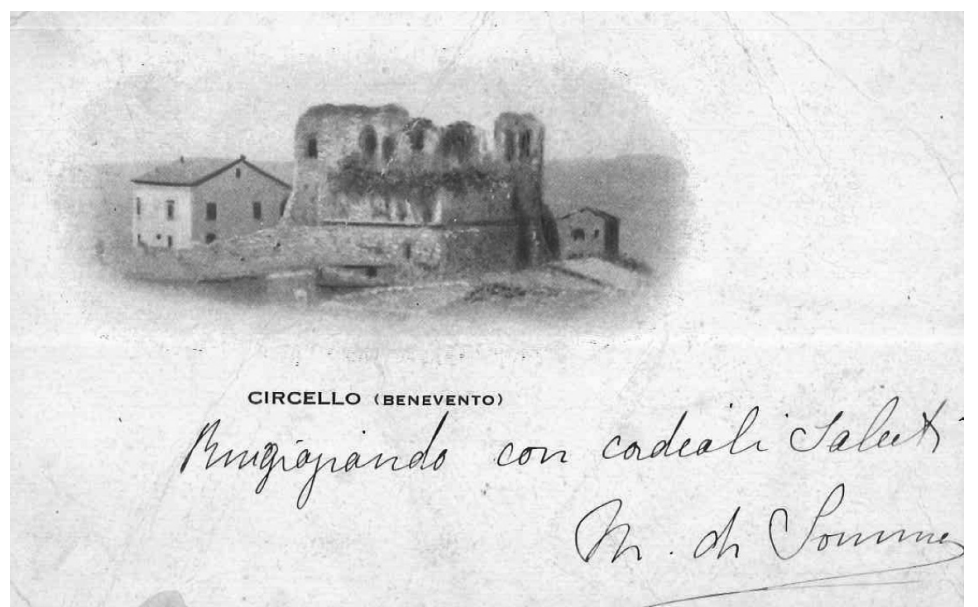 CIRCELLO (BENEVENTO)
Ringraziando con cordiali Saluti
M. di Somma